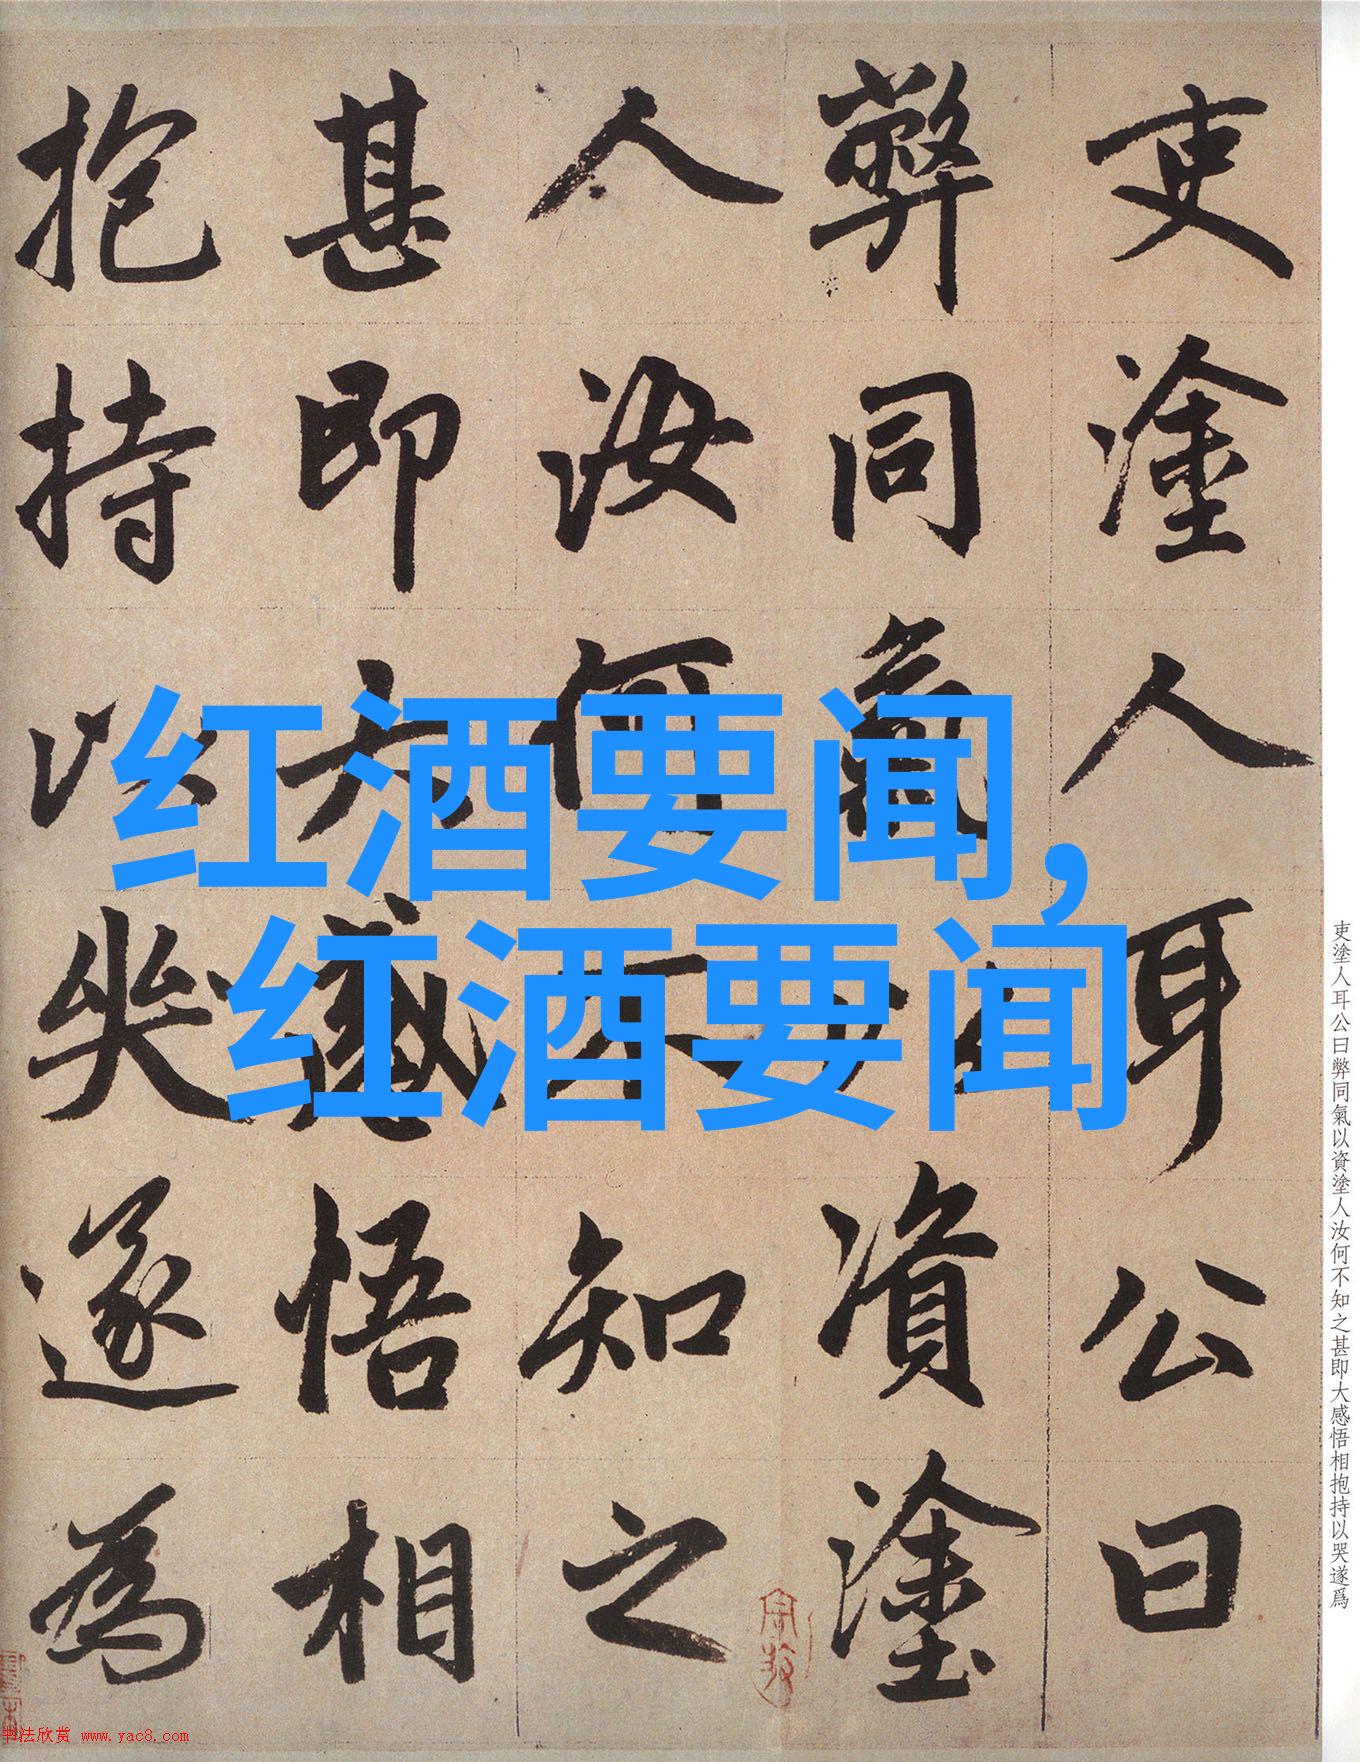 红酒要闻,
红酒要闻
吏塗人耳公曰
弊同氣以資塗
人汝何不知之
甚即大感悟相
抱持以哭遂為
吏塗人耳公曰弊同氣以資塗人汝何不知之甚即大感悟相抱持以哭遂爲
书法欣赏 www.yac8.com